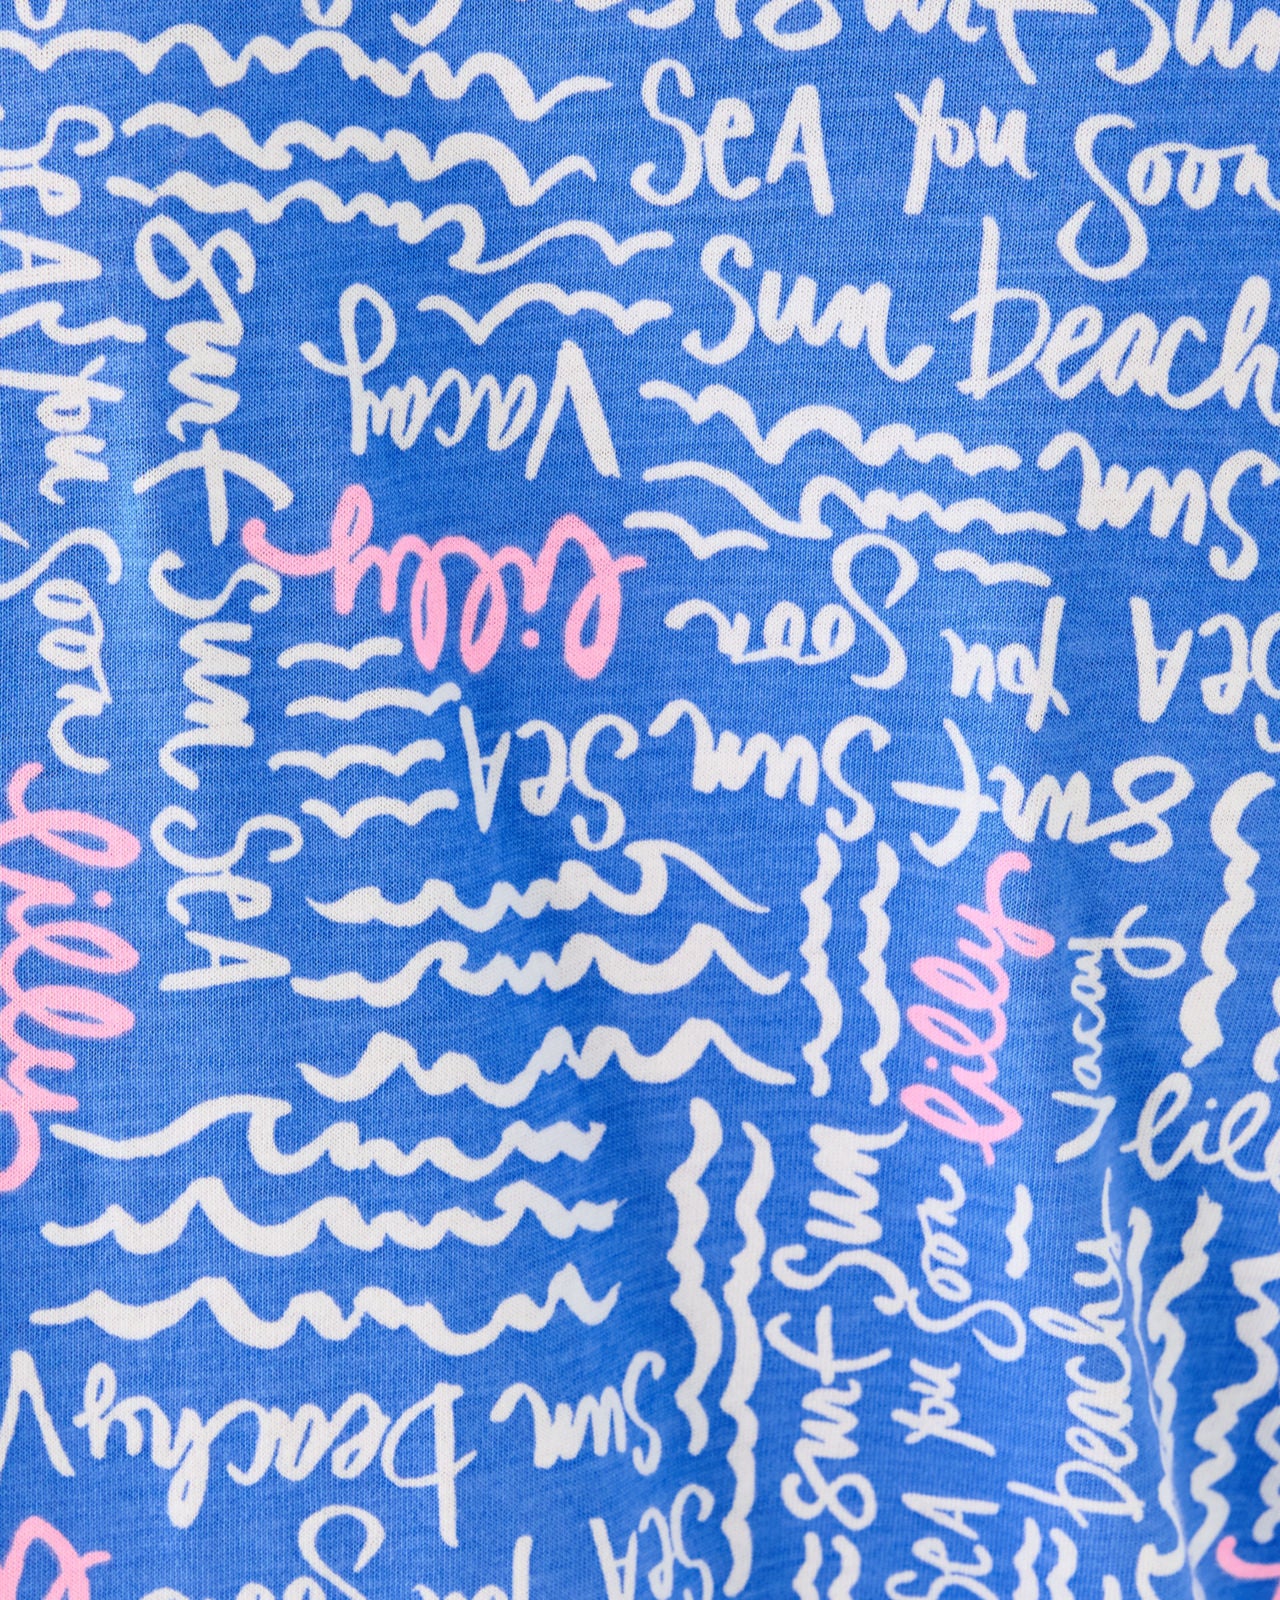 Sun
SEA you Soon
SEA you Soon
Sun beach
Surf Sun SEA
Vacay
Sun
lilly
Soon
you
SEA
SEA
Sun
Surf
lilly
lilly
Vacay
lill
Surf Sun
SEA you Soon
beachy
beachy
Sun
SEA